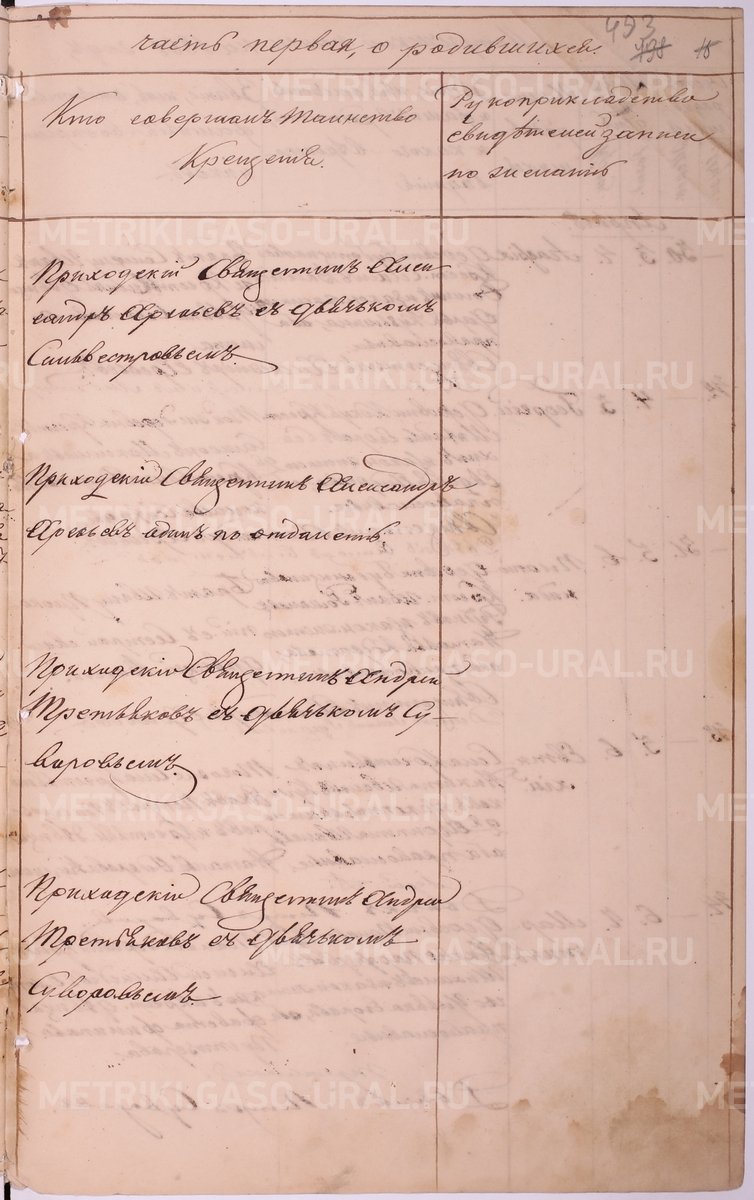 453
часть первая, о родившихся.
198 15
Кто совершалъ таинство
Крещенія.
Рукоприкладство
свидѣтелей записи
по желанію
Приходскій Священникъ Алек
сандръ Арефьевъ съ дьячькомъ
Сильвестровымъ.
Приходскій Священникъ Александръ
Арефьевъ одинъ по отдаленію
Приходскій Священникъ Андрей
Третьяковъ съ дьячькомъ Су-
воровымъ.
Приходскій Священникъ Андрей
Третьяковъ съ дьячькомъ
Суворовымъ.
METRIKI.GASO-URAL.RU